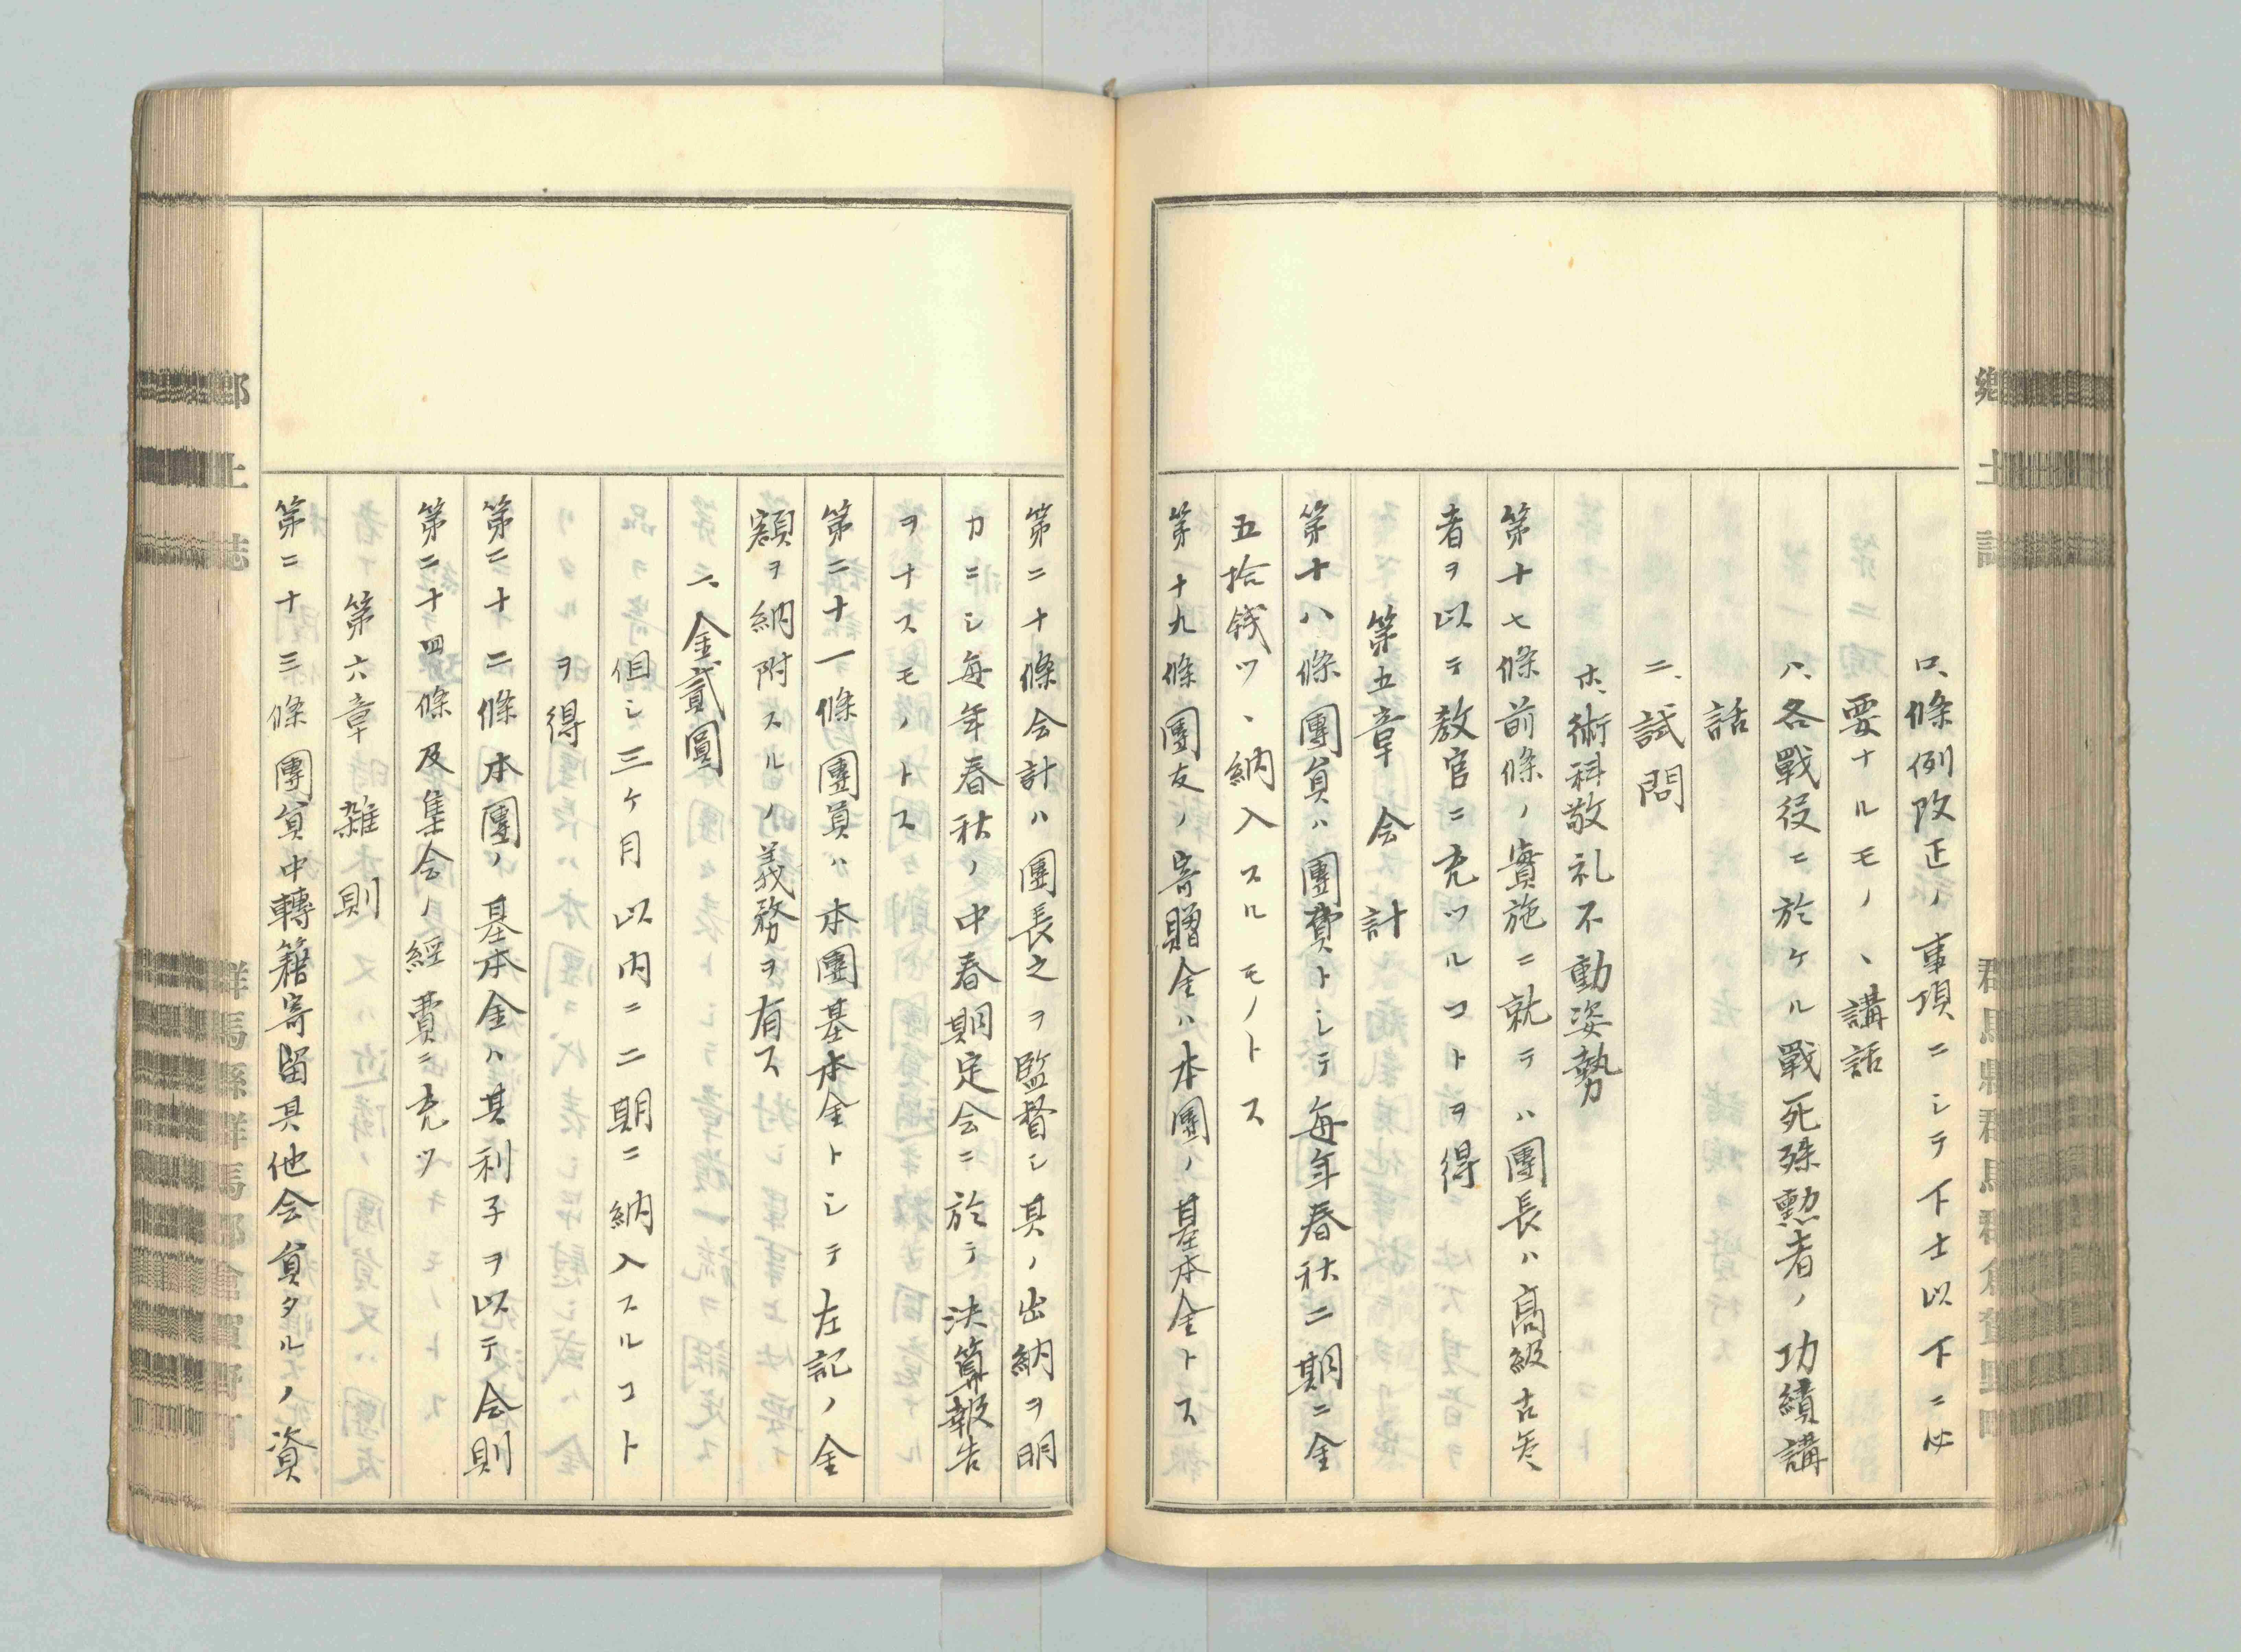 鄕土誌
ロ、條例改正ノ事項ニシテ下士以下ニ必
要ナルモノヽ講話
ハ、各戰役ニ於ケル戰死殊勲者ノ功績講
話
ニ、試問
ホ、術科敬礼不動姿勢
第十七條前條ノ實施ニ就テハ團長ハ高級古参
者ヲ以テ教官ニ充ツルコトヲ得
第五章 会計
第十八條團員ハ團費トシテ毎年春秋二期ニ金
五拾銭ツヽ納入スルモノトス
第十九條團友ノ寄贈金ハ本團ノ基本金トス
第二十條会計ハ團長之ヲ監督シ其ノ出納ヲ明
カニシ毎年春秋ノ中春期定会ニ於テ決算報告
ヲナスモノトス
第二十一條團員ハ本團基本金トシテ左記ノ金
額ヲ納附スルノ義務ヲ有ス
一、金貳圓
但シ三ケ月以内ニ二期ニ納入スルコト
ヲ得
第二十二條本團ノ基本金ハ其利子ヲ以テ会則
第二十四條及集会ノ經費ニ充ツ
第六章 雑則
第二十三條團員中轉籍寄留其他会員タルノ資
鄕土誌
群馬縣群馬郡倉賀野町